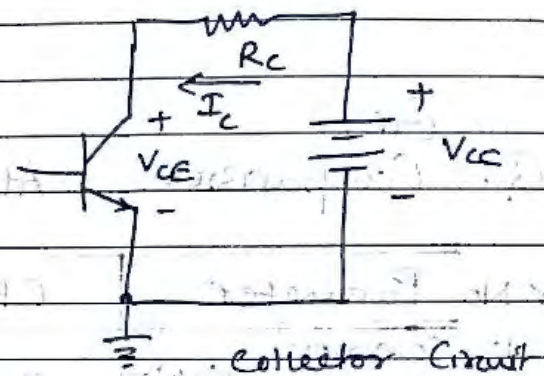 Rc
Ic
+
+
VCE
VCC
-
-
collector Circuit